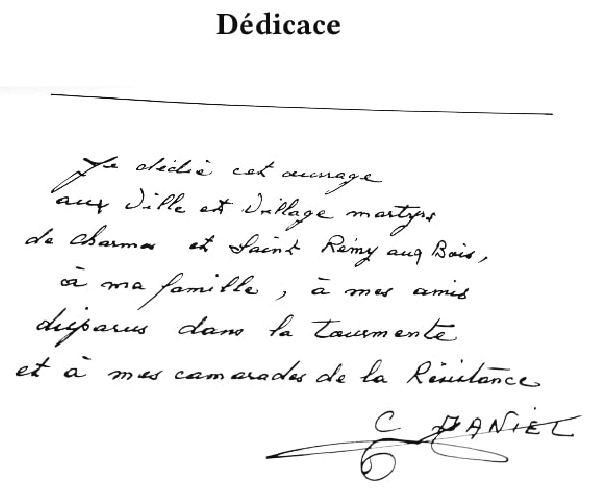 Dédicace
Je dédie cet ouvrage
aux Ville et Village martyrs
de Charmes et Saint Rémy aux Bois,
à ma famille, à mes amis
disparus dans la tourmente
et à mes camarades de la Résistance
C DANIEL